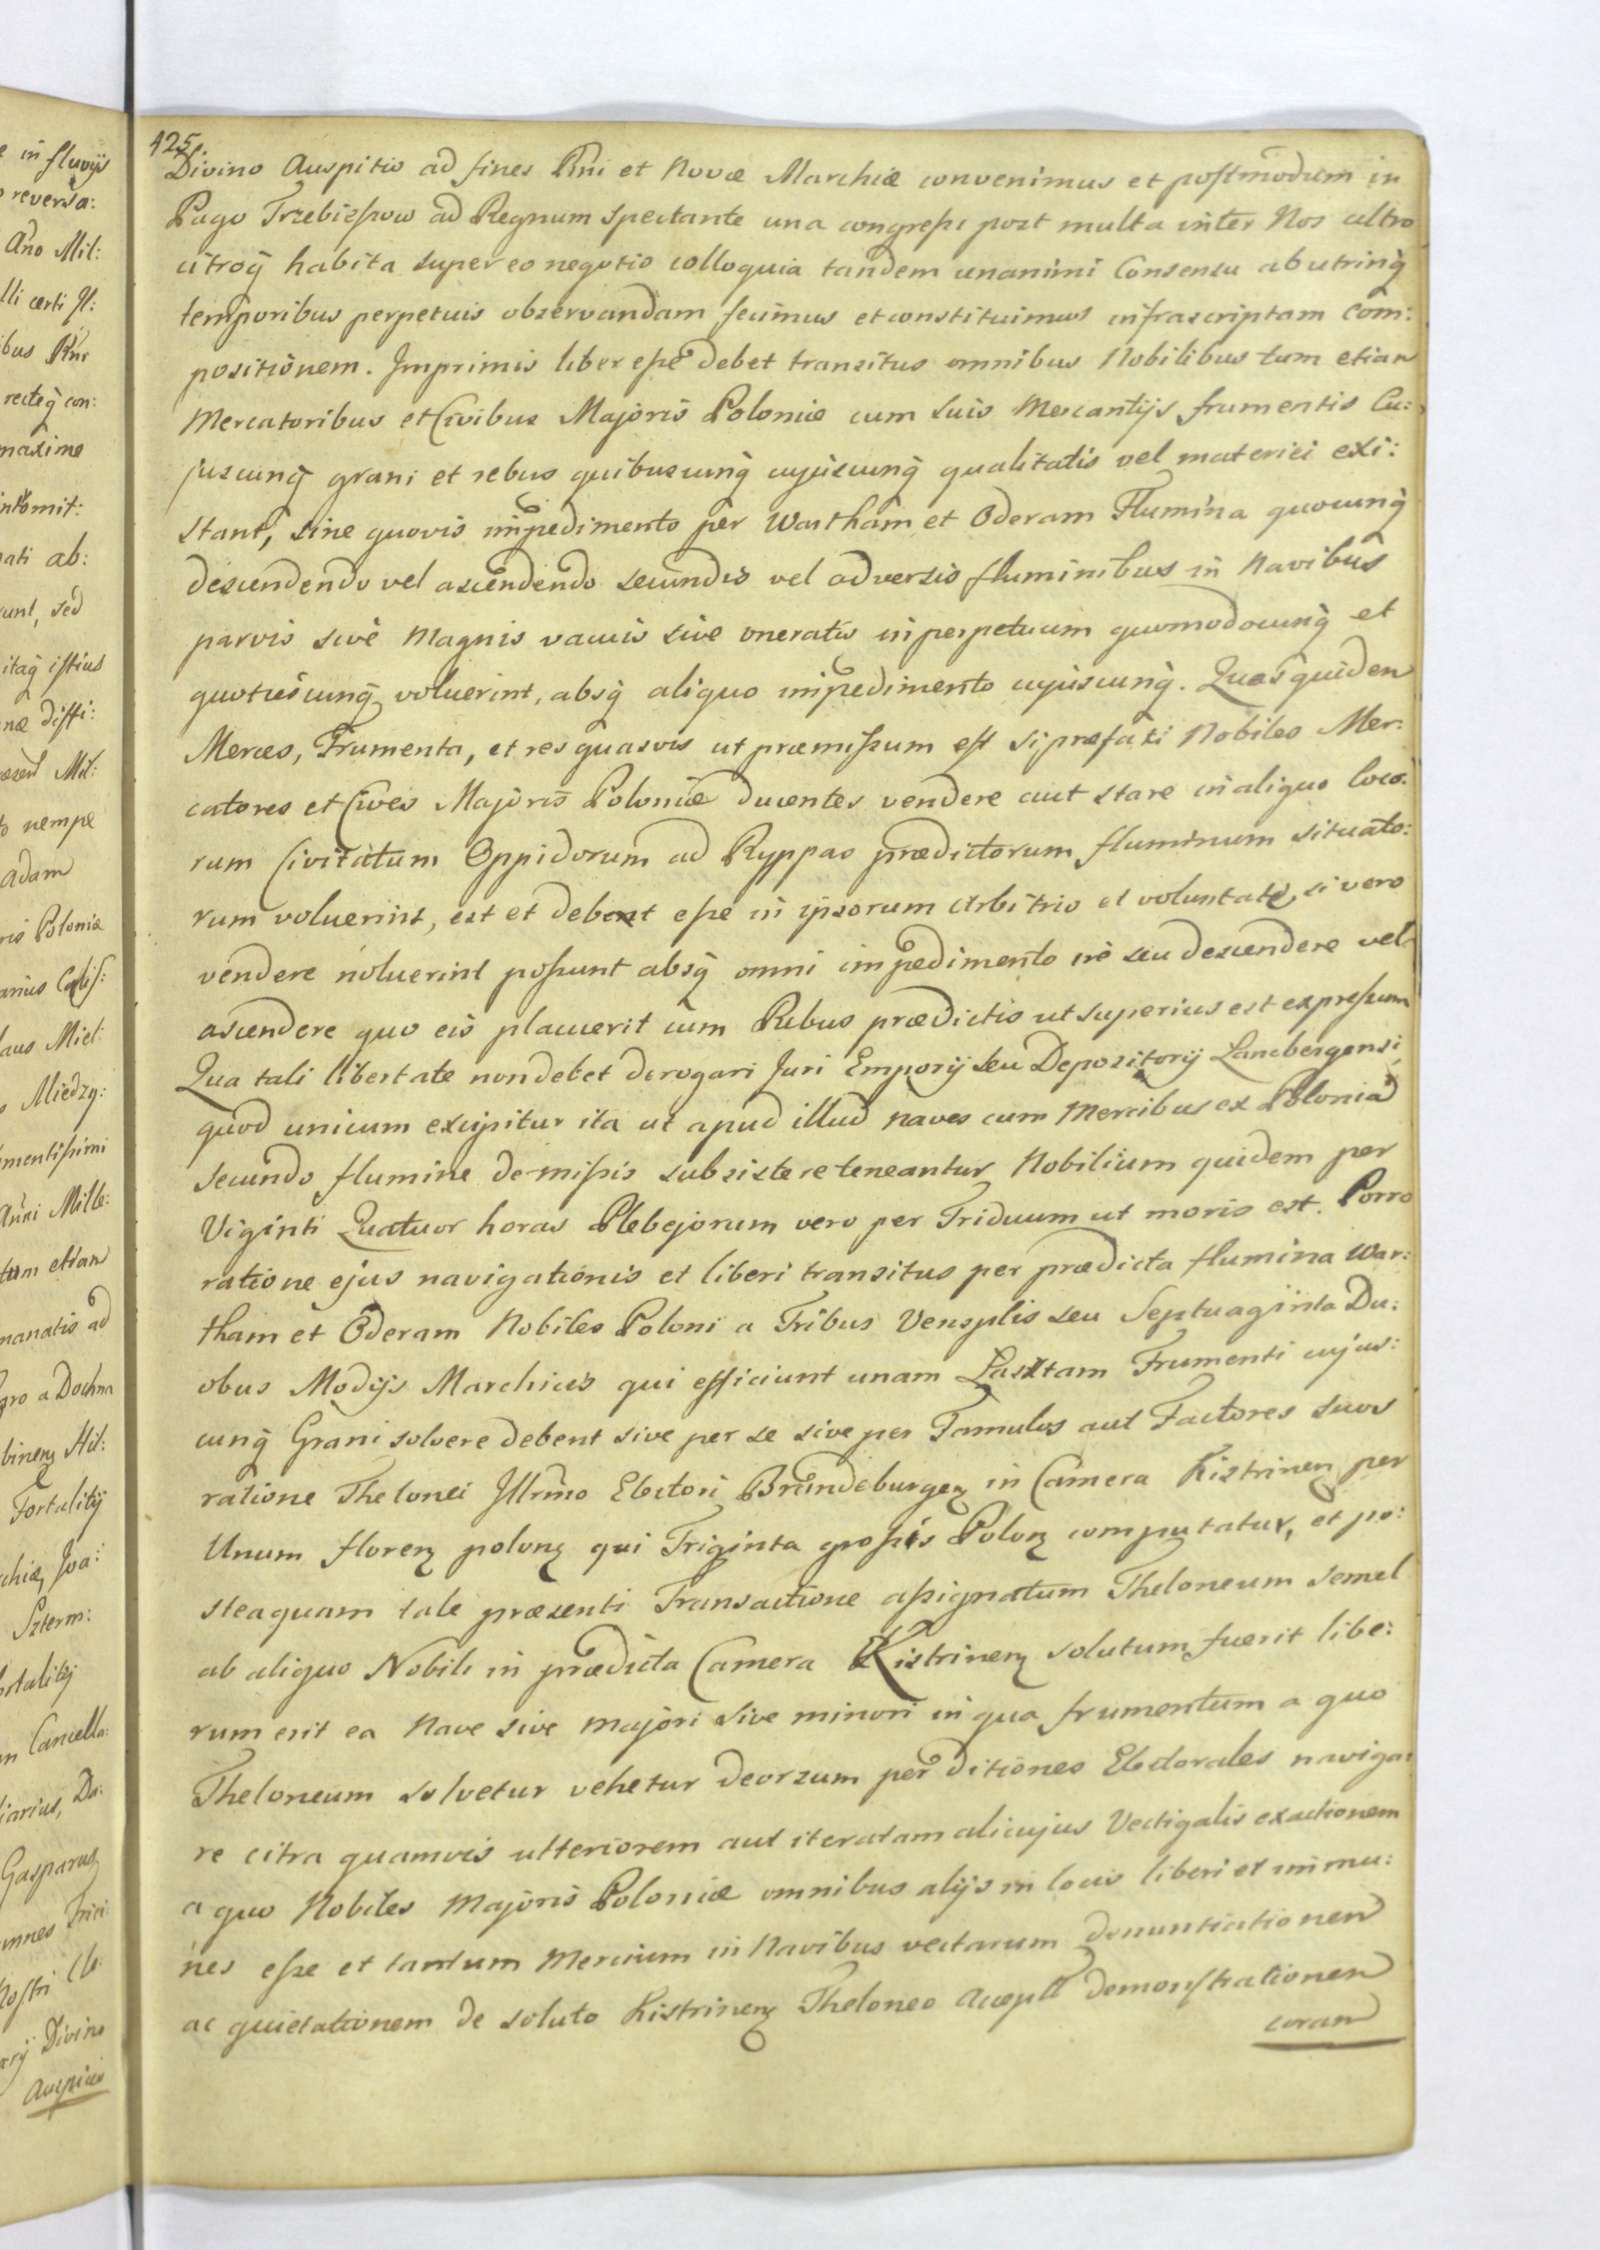 425.
Divino Auspitio ad fines Rni et Novæ Marchiæ convenimus et postmodum in
Pago Trzebiszow ad Regnum spectante una congressi post multa inter Nos ultro
citroq̃ habita super eo negotio colloquia tandem unanimi Consensu ab utrinq̃
temporibus perpetuis observandam fecimus et constituimus infrascriptam Com:
positionem. Imprimis liber esse debet transitus omnibus Nobilibus tum etiam
Mercatoribus et Civibus Majoris Poloniæ cum suis Mercantijs frumentis Cu:
juscunq̃ grani et rebus quibuscunq̃ cujuscunq̃ qualitatis vel materiei exi:
stant, sine quovis impedimento per Wartham et Oderam Flumina quocunq̃
descendendo vel ascendendo secundis vel adversis fluminibus in Navibus
parvis sive Magnis vacuis sive oneratis in perpetuum quomodocunq̃ et
quotiescunq̃ voluerint, absq̃ aliquo impedimento cujuscunq̃. Quasquidem
Merces, Frumenta, et res quasvis ut præmissum est si præfati Nobiles Mer:
catores et Cives Majoris Poloniæ ducentes vendere aut stare in aliquo loco:
rum Civitatum Oppidorum ad Ryppas prædictorum fluminum situato:
rum voluerint, est et debent esse in ipsorum arbitrio et voluntate, si vero
vendere noluerint possunt absq̃ omni impedimento ire seu descendere vel
ascendere quo eis placuerit cum Rebus prædictis ut superius est expressum
Qua tali libertate non debet derogari Juri Emporij seu Depositorij Lancbergensi,
quod unicum excipitur ita ut apud illud naves cum Mercibus ex Polonia
secundo flumine demissis subsistere teneantur Nobilium quidem per
Viginti Quatuor horas Plebejorum vero per Triduum ut moris est. Porro
ratione ejus navigationis et liberi transitus per prædicta flumina War:
tham et Oderam Nobiles Poloni a Tribus Vensplis seu Septuaginta Du:
obus Modijs Marchicis qui efficiunt unam Lasztam Frumenti cujus:
cunq̃ Grani solvere debent sive per se sive per Famulos aut Factores suos
ratione Thelonei Illrmo Electori Brandeburgeñ in Camera Kistrineñ per
Unum floreñ poloñ qui Triginta grossis Poloñ computatur, et po:
steaquam tale præsenti Transactione assignatum Theloneum semel
ab aliquo Nobili in prædicta Camera Kistrineñ solutum fuerit libe:
rum erit ea Nave sive majori sive minori in qua frumentum a quo
Theloneum solvetur vehetur deorsum per ditiones Electorales naviga:
re citra quamvis ulteriorem aut iteratam alicujus Vectigalis exactionem
a quo Nobiles Majoris Poloniæ omnibus alijs in locis liberi et immu:
nes esse et tantum Mercium in Navibus vectarum denuntiationem
ac quietationem de soluto Kistrineñ Theloneo demonstrationem
coram